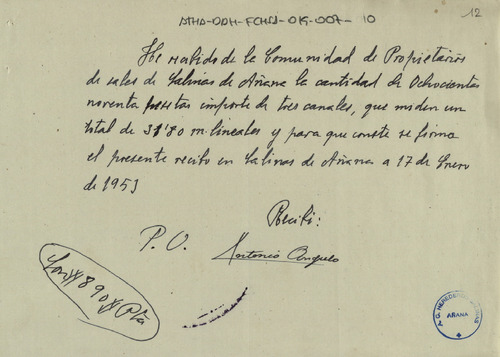 ATHA-DAH-FCHSA-019-007-10
12
He recibido de la Comunidad de Propietarios
de sales de Salinas de Añana la cantidad de Ochocientas
noventa pesetas importe de tres canales, que miden un
total de 31'80 m lineales y para que conste se firma
el presente recibo en Salinas de Añana a 17 de Enero
de 1953
Recibí:
P.O.
Antonio Angulo
Son # 890 # Pta
AÑANA